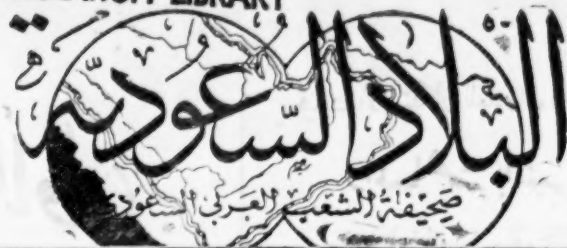 LIBRARY
البلاد السعودية
صَحيفة الشعب العربي السعودي